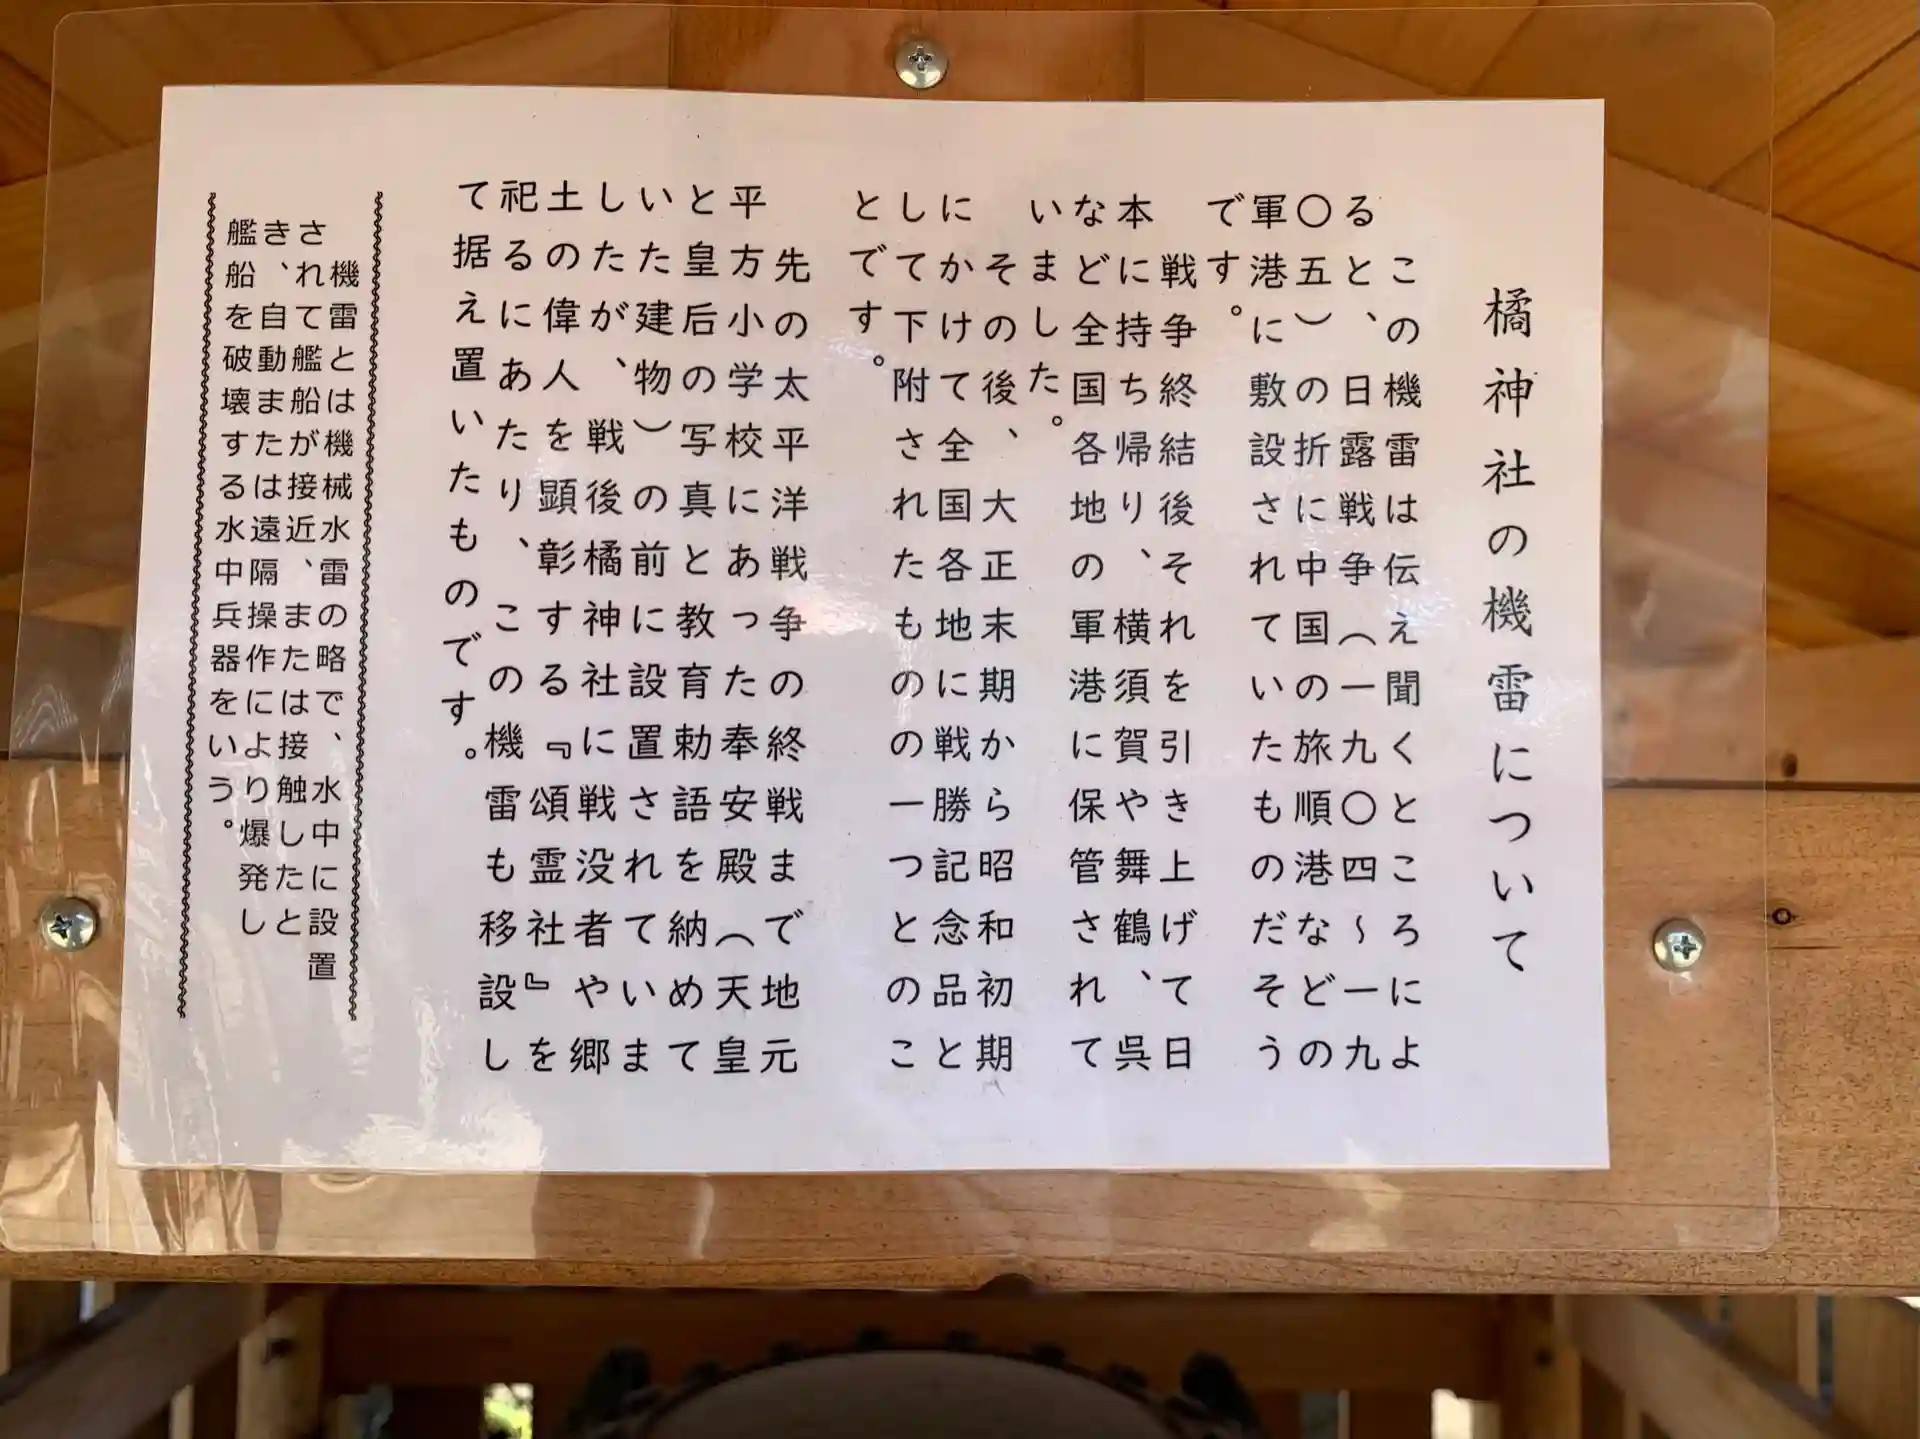 橘神社の機雷について
この機雷は伝え聞くところによ
ると、日露戦争（一九〇四～一九
〇五）の折に中国の旅順港などの
軍港に敷設されていたものだそう
です。
戦争終結後それを引き上げて日
本に持ち帰り、横須賀や舞鶴、呉
など全国各地の軍港に保管されて
いました。
その後、大正末期から昭和初期
にかけて全国各地に戦勝記念品と
して下附されたものの一つとのこ
とです。
先の太平洋戦争の終戦まで地元
平方小学校にあった奉安殿（天皇
と皇后の写真と教育勅語を納めて
いた建物）の前に設置されていま
したが、戦後橘神社に戦没者や郷
土の偉人を顕彰する『頌霊社』を
祀るにあたり、この機雷も移設し
て据え置いたものです。
機雷とは機械水雷の略で、水中に設置
されて艦船が接近、または接触したと
き、自動または遠隔操作により爆発し
艦船を破壊する水中兵器をいう。